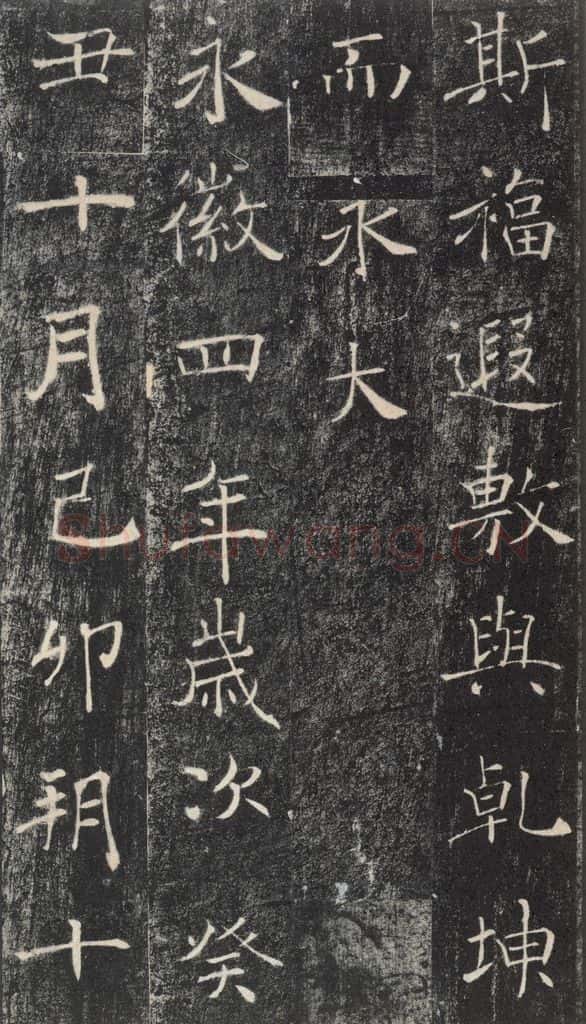 斯福遐敷與乹坤
而永大
永徽四年歲次癸
丑十月己卯朔十
Shufawang.CN